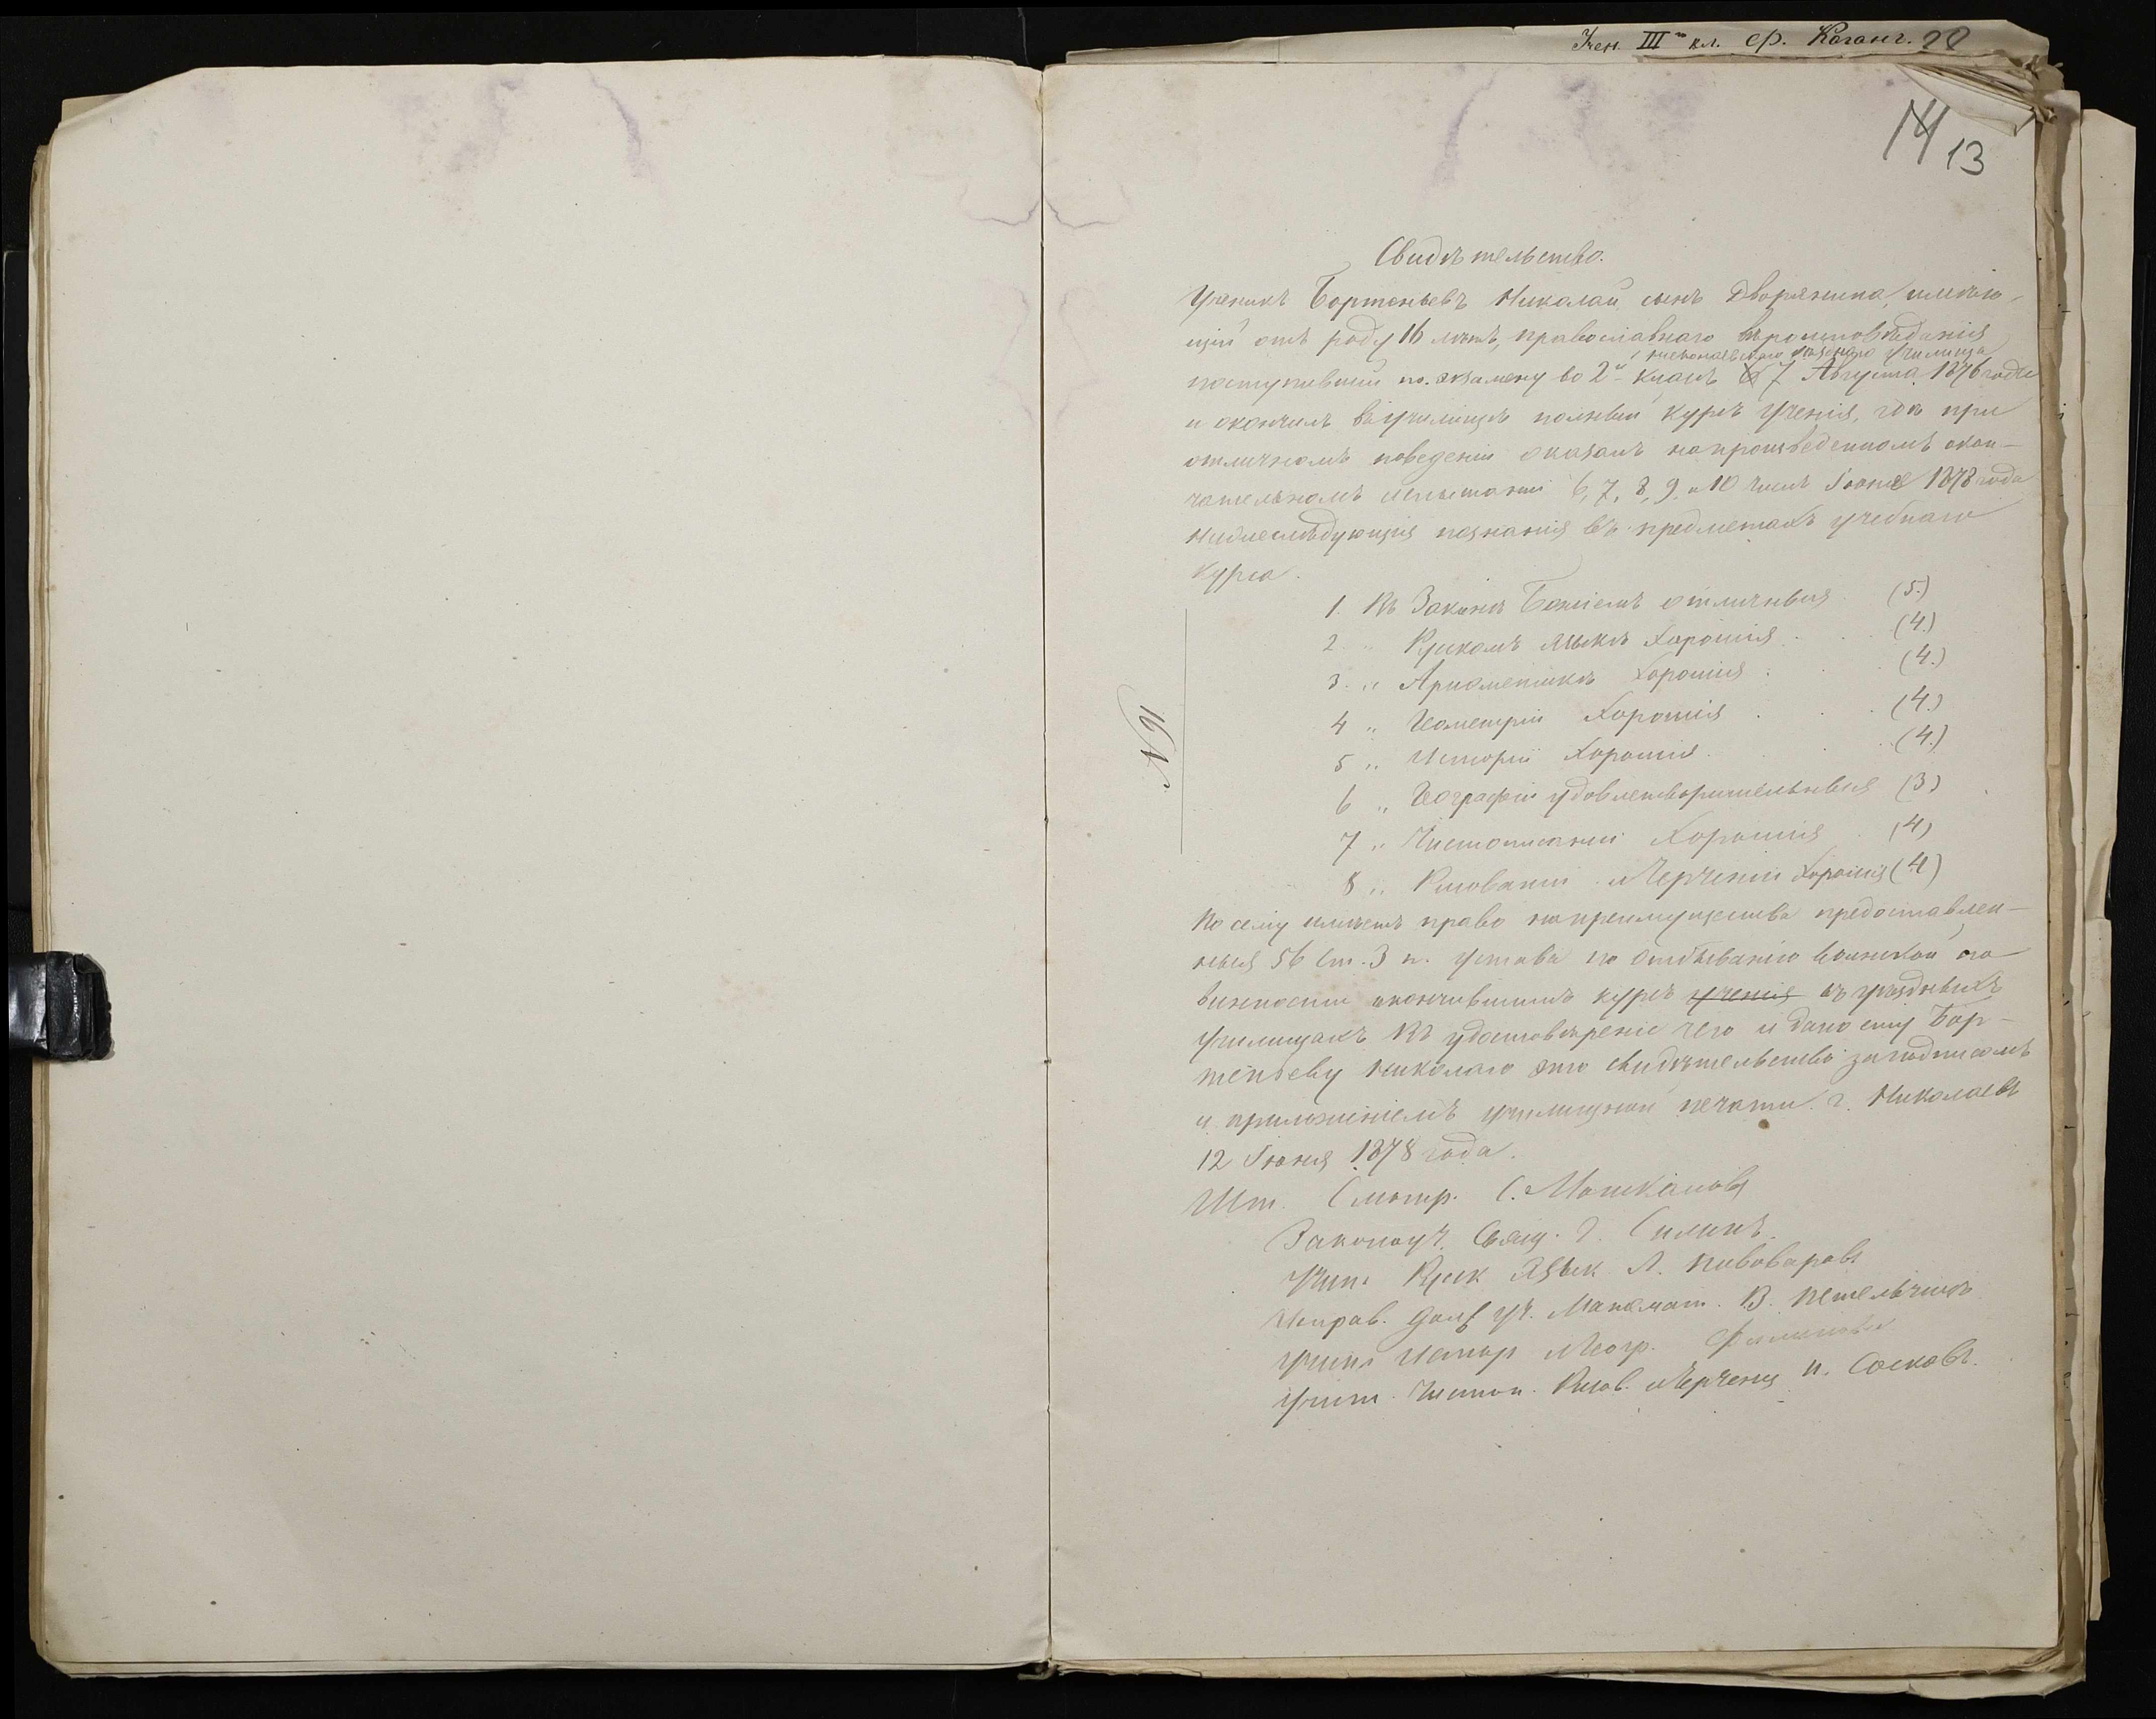 Учен. III кл. Ф. Каганъ. 22
14 13
Свидѣтельство.
Ученикъ Бортеньевъ Николай сынъ Дворянина, имѣю-
щій отъ роду 16 лѣтъ, православнаго вѣроисповѣданія
Николаевскаго уѣзднаго Училища
поступившій по экзамену во 2й классъ 7 Августа 1876 года
и окончилъ въ училищѣ полный курсъ ученія, гдѣ при
отличномъ поведеніи оказалъ на произведенномъ окон-
чательномъ испытаніи 6, 7, 8, 9 и 10 чиселъ Іюня 1878 года
нижеслѣдующія познанія въ предметахъ учебнаго
курса.
№ 91
1. Въ Законѣ Божіемъ отличныя (5.)
2 " Русскомъ языкѣ Хорошія (4.)
3. " Ариѳметикѣ Хорошія (4.)
4 " Геометріи Хорошія (4.)
5 " Исторіи Хорошія (4.)
6 " Географіи удовлетворительныя (3)
7 " Чистописаніи Хорошія (4)
8 " Рисованіи и Черченіи Хорошія (4)
По сему имѣетъ право на преимущества предоставлен-
ныя 56 ст. 3 п. устава по отбыванію воинской по-
винности окончившимъ курсъ ученія въ уѣздныхъ
училищахъ. Въ удостовѣреніе чего и дано ему Бор-
теньеву Николаю это свидѣтельство за подписомъ
и приложеніемъ училищной печати. г. Николаевъ
12 Іюня 1878 года.
Шт. Смотр. С. Мошкановъ
Законоуч. Свящ. Г. Силинъ.
Учит. Русск. Язык. Л. Пивоваровъ
Исправ. долж. уч. Математ. В. Петельчицъ
Учит. Истор. и Геогр. Филиповъ
Учит. Чистоп. Рисов. и Черченія И. Сосковъ.